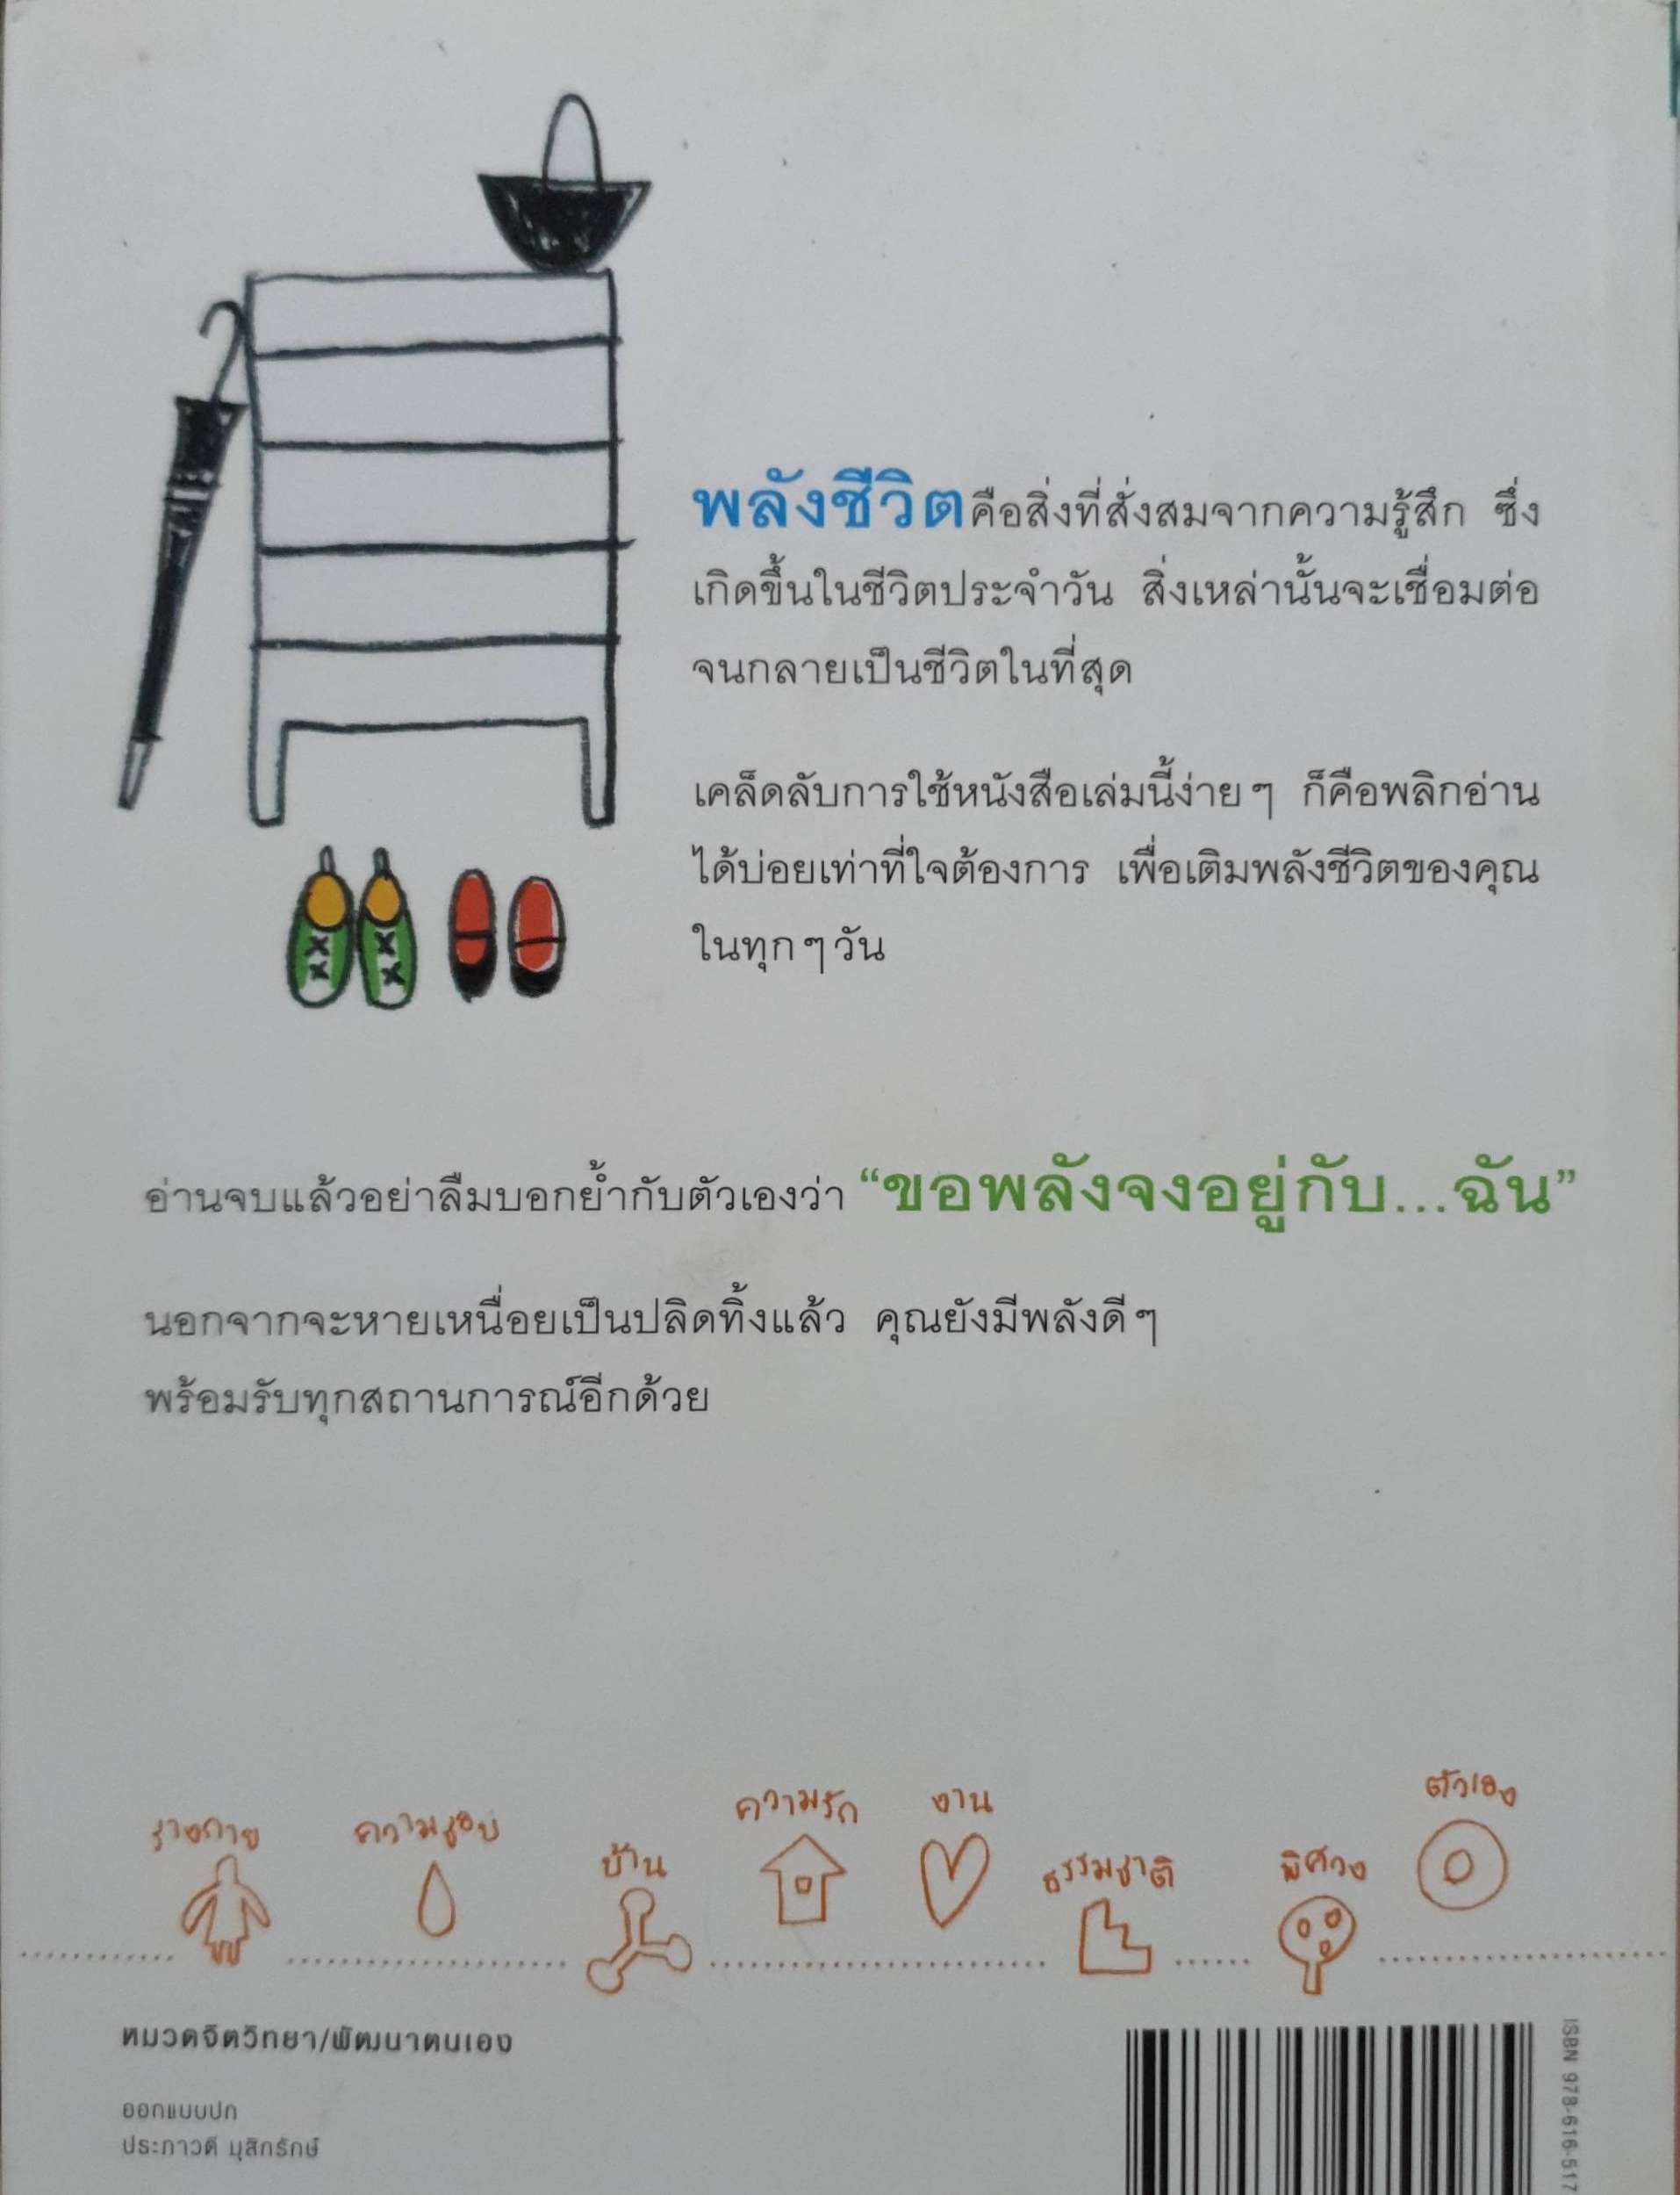 พลังชีวิตคือสิ่งที่สั่งสมจากความรู้สึก ซึ่ง
เกิดขึ้นในชีวิตประจำวัน สิ่งเหล่านั้นจะเชื่อมต่อ
จนกลายเป็นชีวิตในที่สุด
เคล็ดลับการใช้หนังสือเล่มนี้ง่ายๆ ก็คือพลิกอ่าน
ได้บ่อยเท่าที่ใจต้องการ เพื่อเติมพลังชีวิตของคุณ
ในทุกๆวัน
อ่านจบแล้วอย่าลืมบอกย้ำกับตัวเองว่า “ขอพลังจงอยู่กับ...ฉัน”
นอกจากจะหายเหนื่อยเป็นปลิดทิ้งแล้ว คุณยังมีพลังดีๆ
พร้อมรับทุกสถานการณ์อีกด้วย
ร่างกาย
ความชอบ
บ้าน
ความรัก
งาน
ธรรมชาติ
พิศวง
ตัวเอง
หมวดจิตวิทยา/พัฒนาตนเอง
ออกแบบปก
ประภาวดี มุสิกรักษ์
ISBN 978-616-517